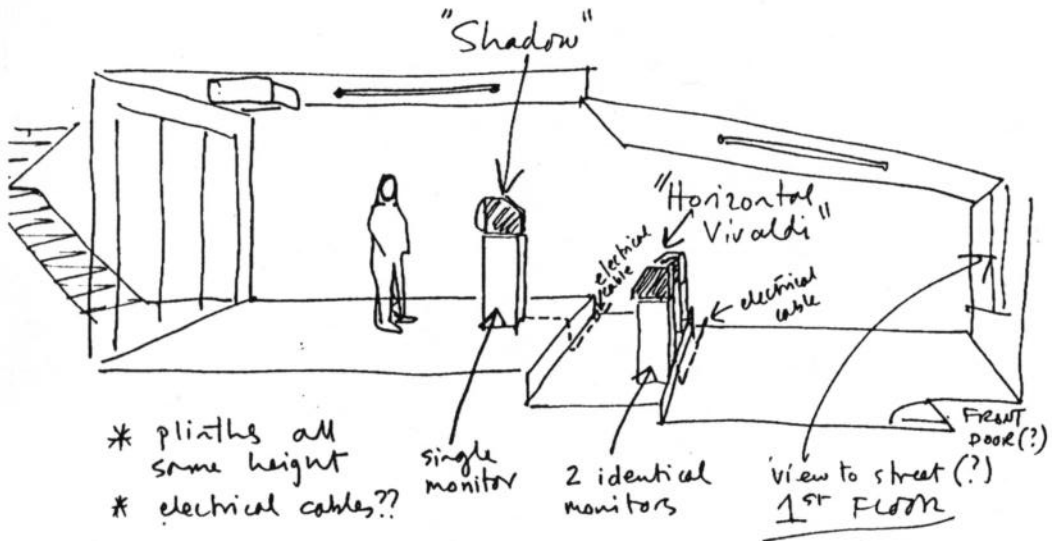 "Shadow"
"Horizontal
Vivaldi"
electrical
cable
electrical
cable
FRONT
DOOR(?)
* plinths all
same height
* electrical cables??
single
monitor
2 identical
monitors
view to street (?)
1ST FLOOR